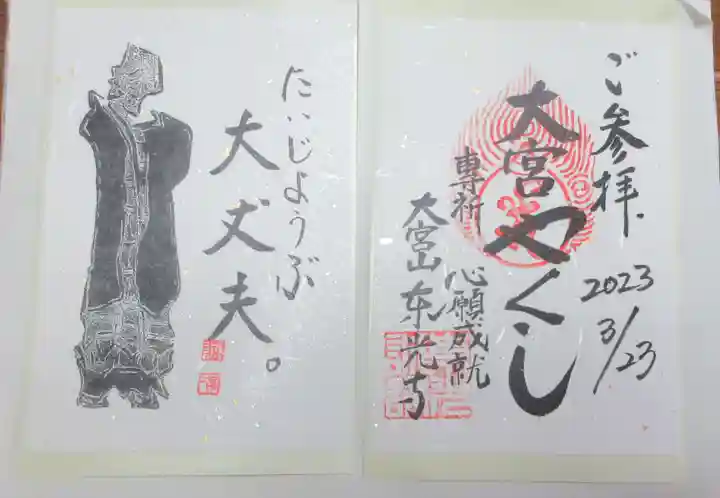 ご参拝.
2023
3/23
大宮やくし
専祈 心願成就
大宮山 东光寺
たいじようぶ
大丈夫。